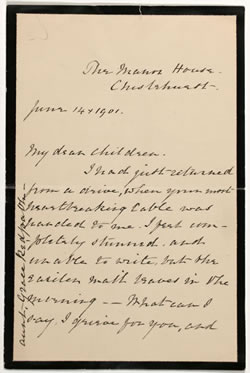 The Manor House.
Chislehurst.
June 14th 1901.
My dear Children.
I had just returned
from a drive, when your most
heartbreaking Cable was
handed to me. I feel com-
pletely stunned. and
unable to write, but the
mail leaves in the
morning -- What can I
say. I grieve for you, and
aunt, Grace Redpath